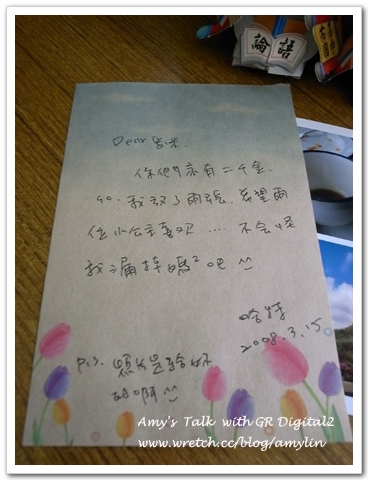 論語
Dear 米,
你們家有二千金,
so. 我放了兩張, 希望兩
位小公主喜歡 .... 不会怪
我漏掉媽²吧 ^^
2008.3.15
P.S. 是給妳
的啊 ^^
Amy's Talk with GR Digital2
www.wretch.cc/blog/amylin